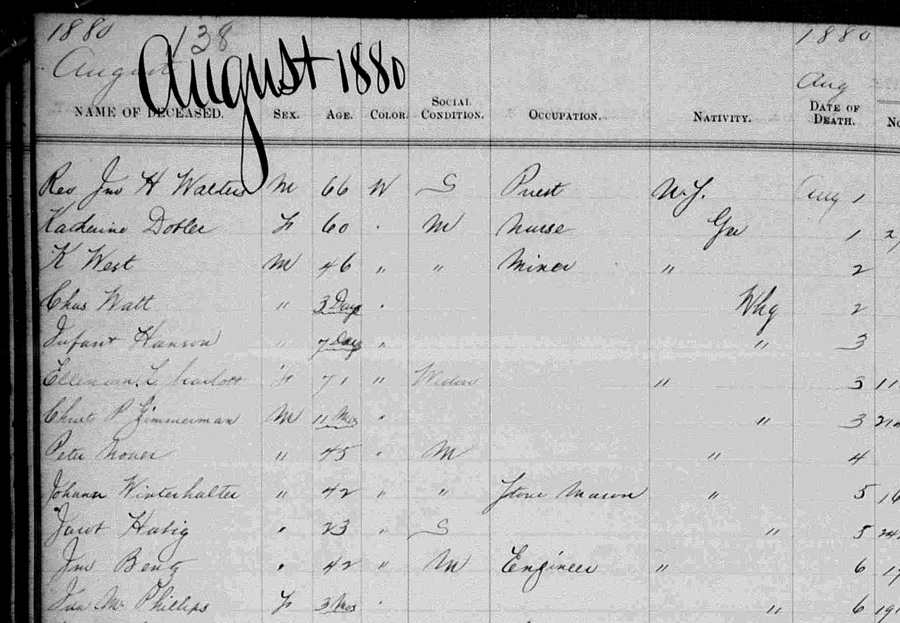 1880 138 1880
August August 1880 Aug
NAME OF DECEASED. SEX. AGE. COLOR. SOCIAL CONDITION. OCCUPATION. NATIVITY. DATE OF DEATH. No
Rev Jno H Walters M 66 W S Priest N.J. Aug 1
Katherine Dobler F 60 " M Nurse Ger 1 2
K West M 46 " " Miner " 2
Chas Watt " 3 Days " Whg 2
Infant Hanson " 7 Days " " 3
F 71 " Widow " 3 11
Christ P Zimmerman M 11 Mos " " 3
Peter " 45 " M " 4
Johann Winterhalter " 42 " " Stone Mason " 5 16
Habig " 23 " S " 5
Jno Bentz " 42 " M Engineer " 6
M Phillips F 3 Mos " " 6 191